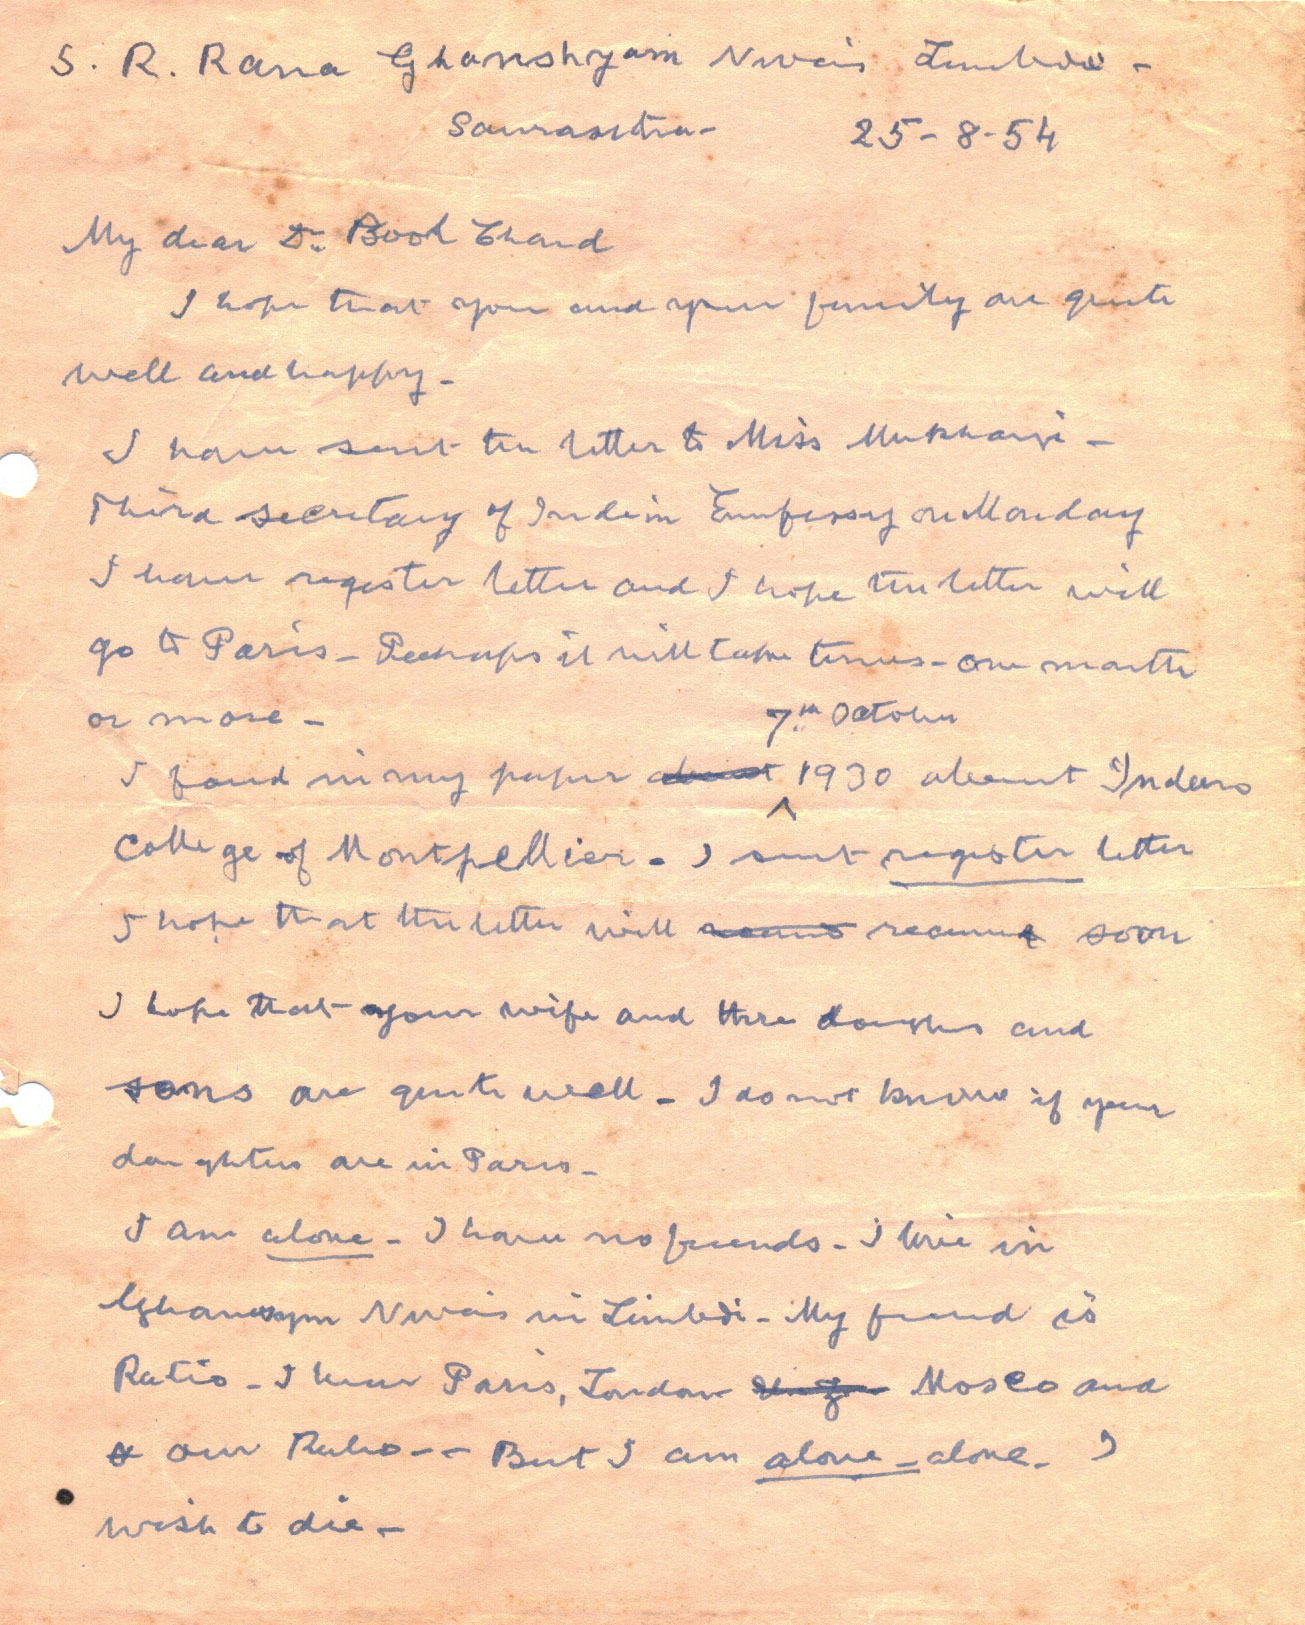 S. R. Rana Ghanshyam Nivas Limbdi -
Saurasstra - 25-8-54
My dear Dr. Bool Chand
I hope that you and your family are quite
well and happy -
I have sent the letter to Miss Mukharji -
Third secretary of Indian Embessy on Monday
I have register letter and I hope the letter will
go to Paris - Perhaps it will take times - one month
or more -
7th October
I found in my paper about 1930 about Indans
College of Montpellier - I sent register letter
I hope that the letter will receive soon
I hope that your wife and three doughters and
sons are quite well - I do not know if your
daughters are in Paris -
I am alone - I have no friends - I live in
Ghansym Nivas in Limbdi - My friend is
Ratio - I hear Paris, London Mosco and
our Ratio -- But I am alone - alone - I
wish to die -